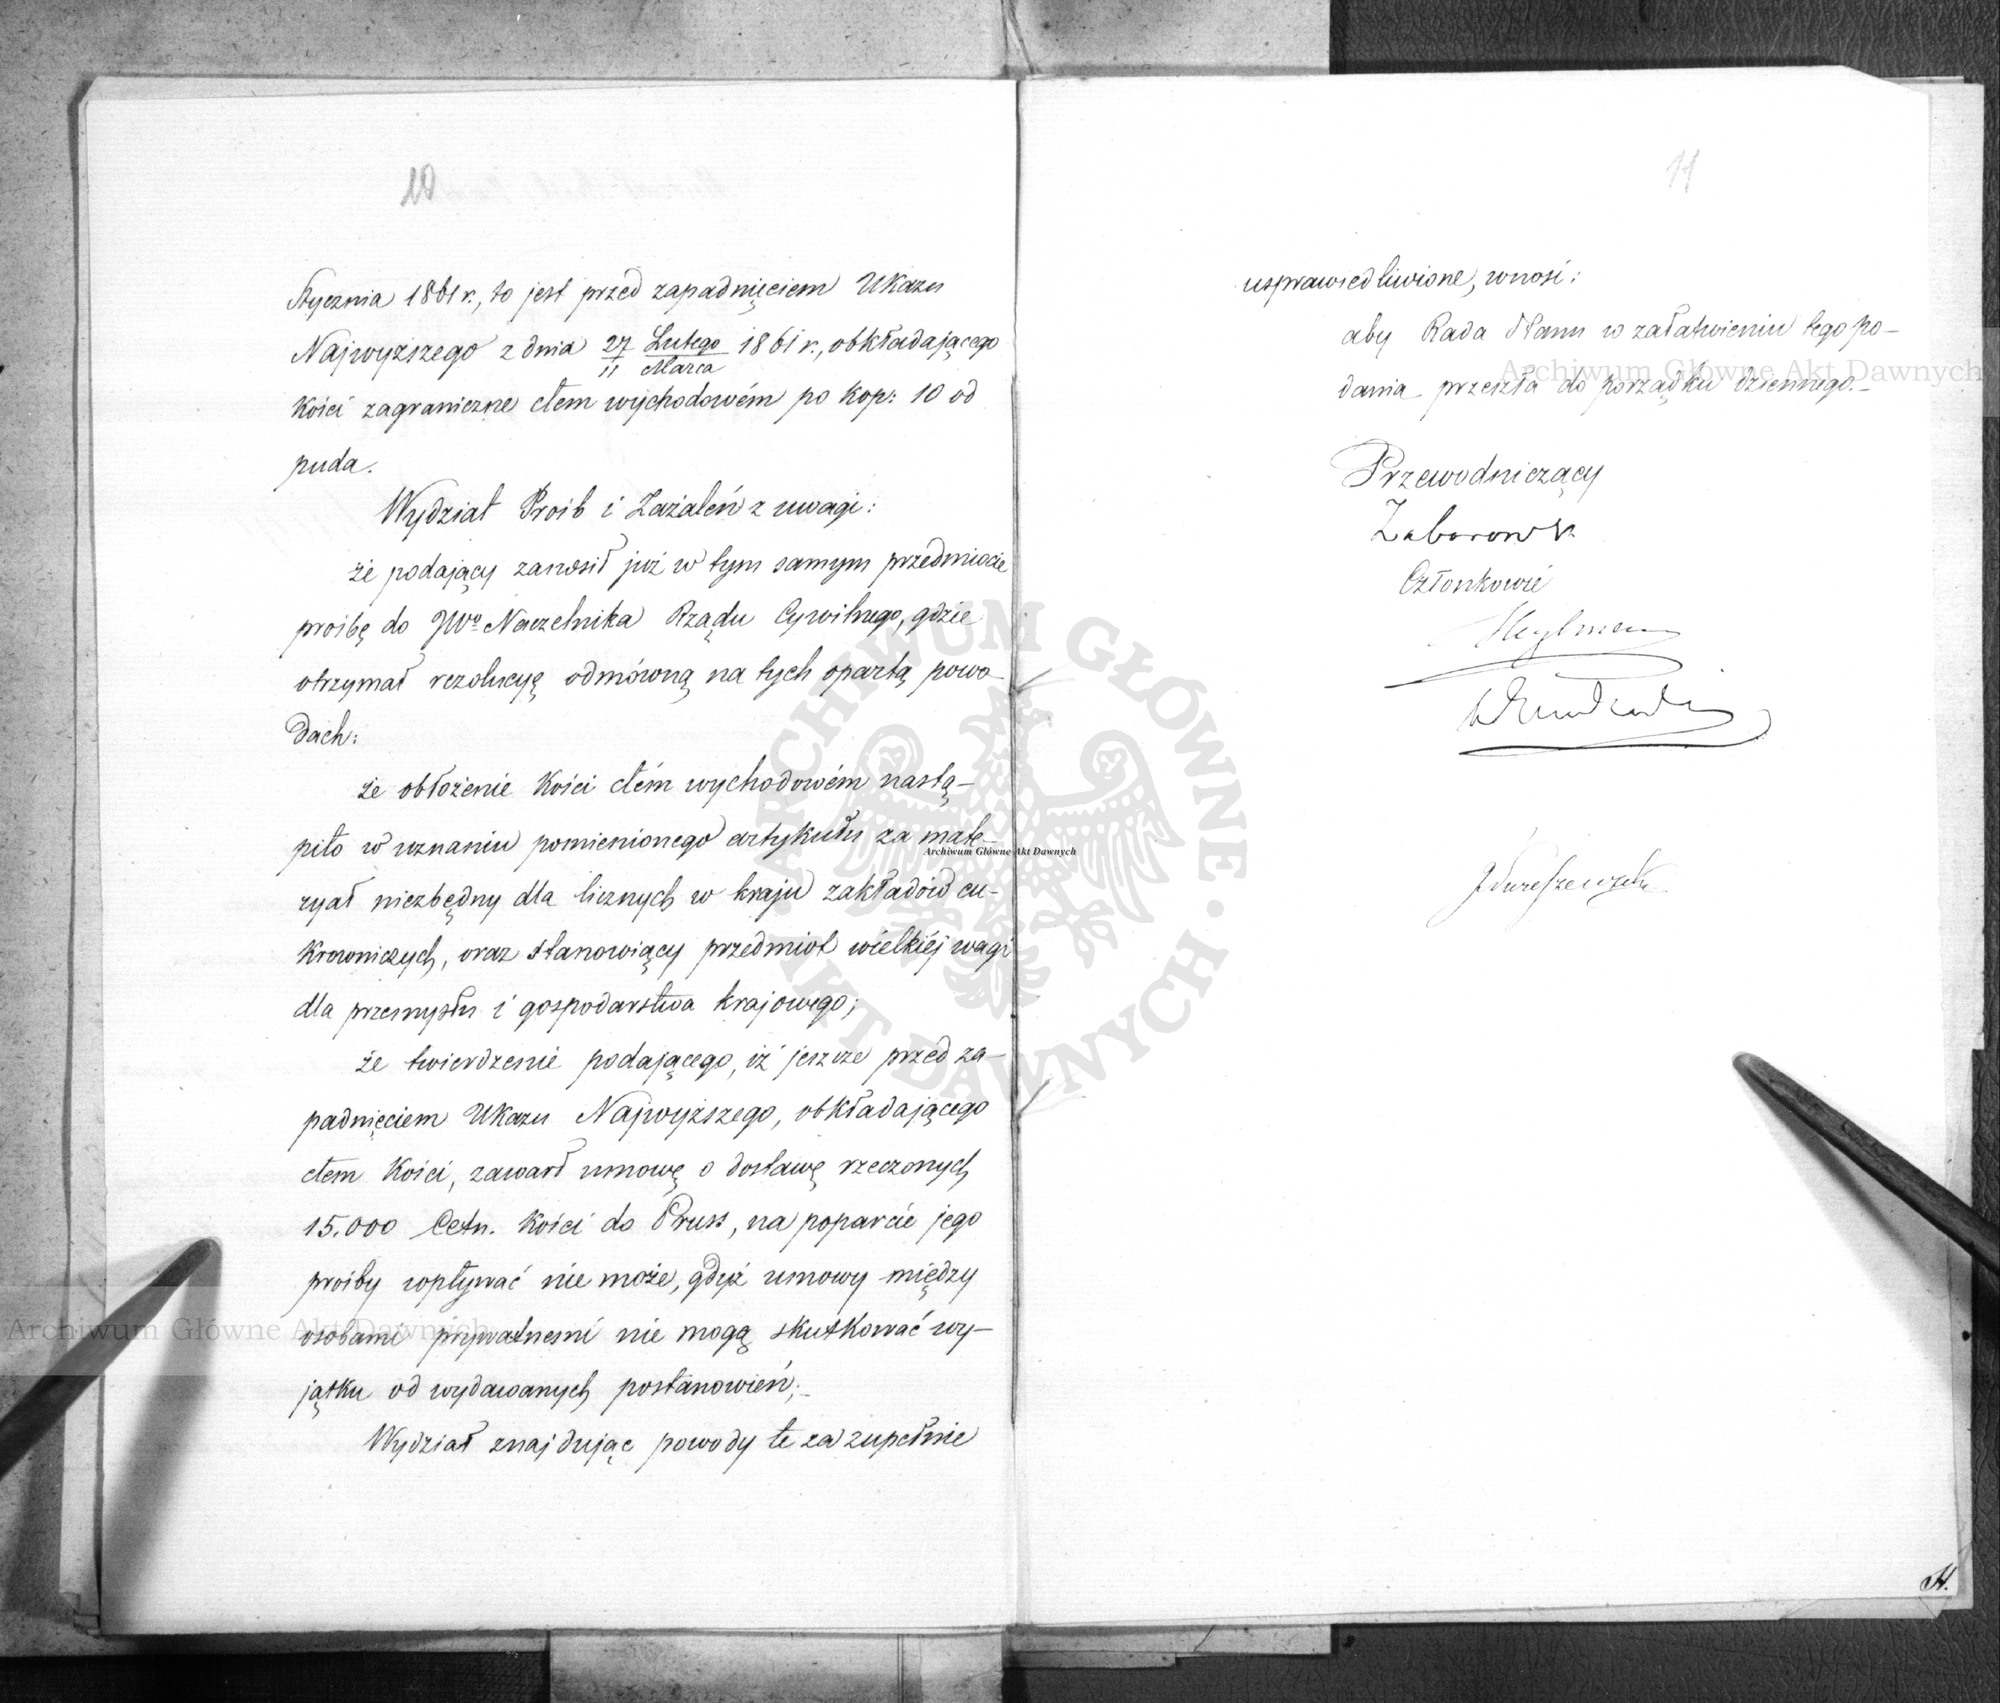 10
Stycznia 1861 r., to jest przed zapadnięciem Ukazu
Najwyższego z dnia 27 Lutego / 11 Marca 1861 r., obkładającego
kości zagraniczne cłem wychodowém po kop: 10 od
puda.
Wydział Prośb i Zażaleń z uwagi:
że podający zanosił już w tym samym przedmiocie
prośbę do JWo Naczelnika Rządu Cywilnego, gdzie
otrzymał rezolucyę odmówną na tych opartą powo-
dach:
że obłożenie kości cłém wychodowém nastą-
piło w uznaniu pomienionego artykułu za mate-
ryał niezbędny dla licznych w kraju zakładów cu-
krowniczych, oraz stanowiący przedmiot wielkiéj wagi
dla przemysłu i gospodarstwa krajowego;
że twierdzenie podającego, iż jeszcze przed za-
padnięciem Ukazu Najwyższego, obkładającego
cłem kości, zawarł umowę o dostawę rzeczonych
15.000 Cetn. kości do Pruss, na poparcie jego
prośby wpływać nie może, gdyż umowy między
osobami prywatnemi nie mogą skutkować wy-
jątku od wydawanych postanowień;-
Wydział znajdując powody te za zupełnie
11
usprawiedliwione, wnosi:
aby Rada Stanu w załatwieniu tego po-
dania przeszła do porządku dziennego.-
Przewodniczący
Członkowie
Heylman
H.
Archiwum Główne Akt Dawnych
Archiwum Główne Akt Dawnych
Archiwum Główne Akt Dawnych
ARCHIWUM GŁÓWNE AKT DAWNYCH